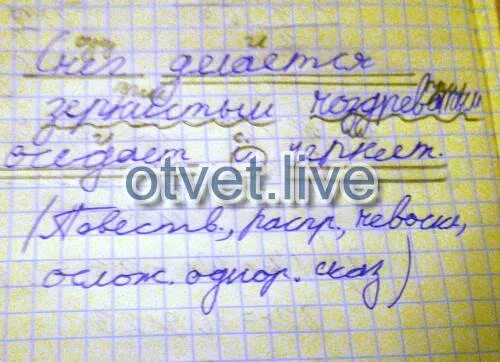 Снег делается
зернистым ноздреватым
оседает и чернеет.
otvet.live
(Повеств., распр., невоскл,
ослож. однор. сказ)